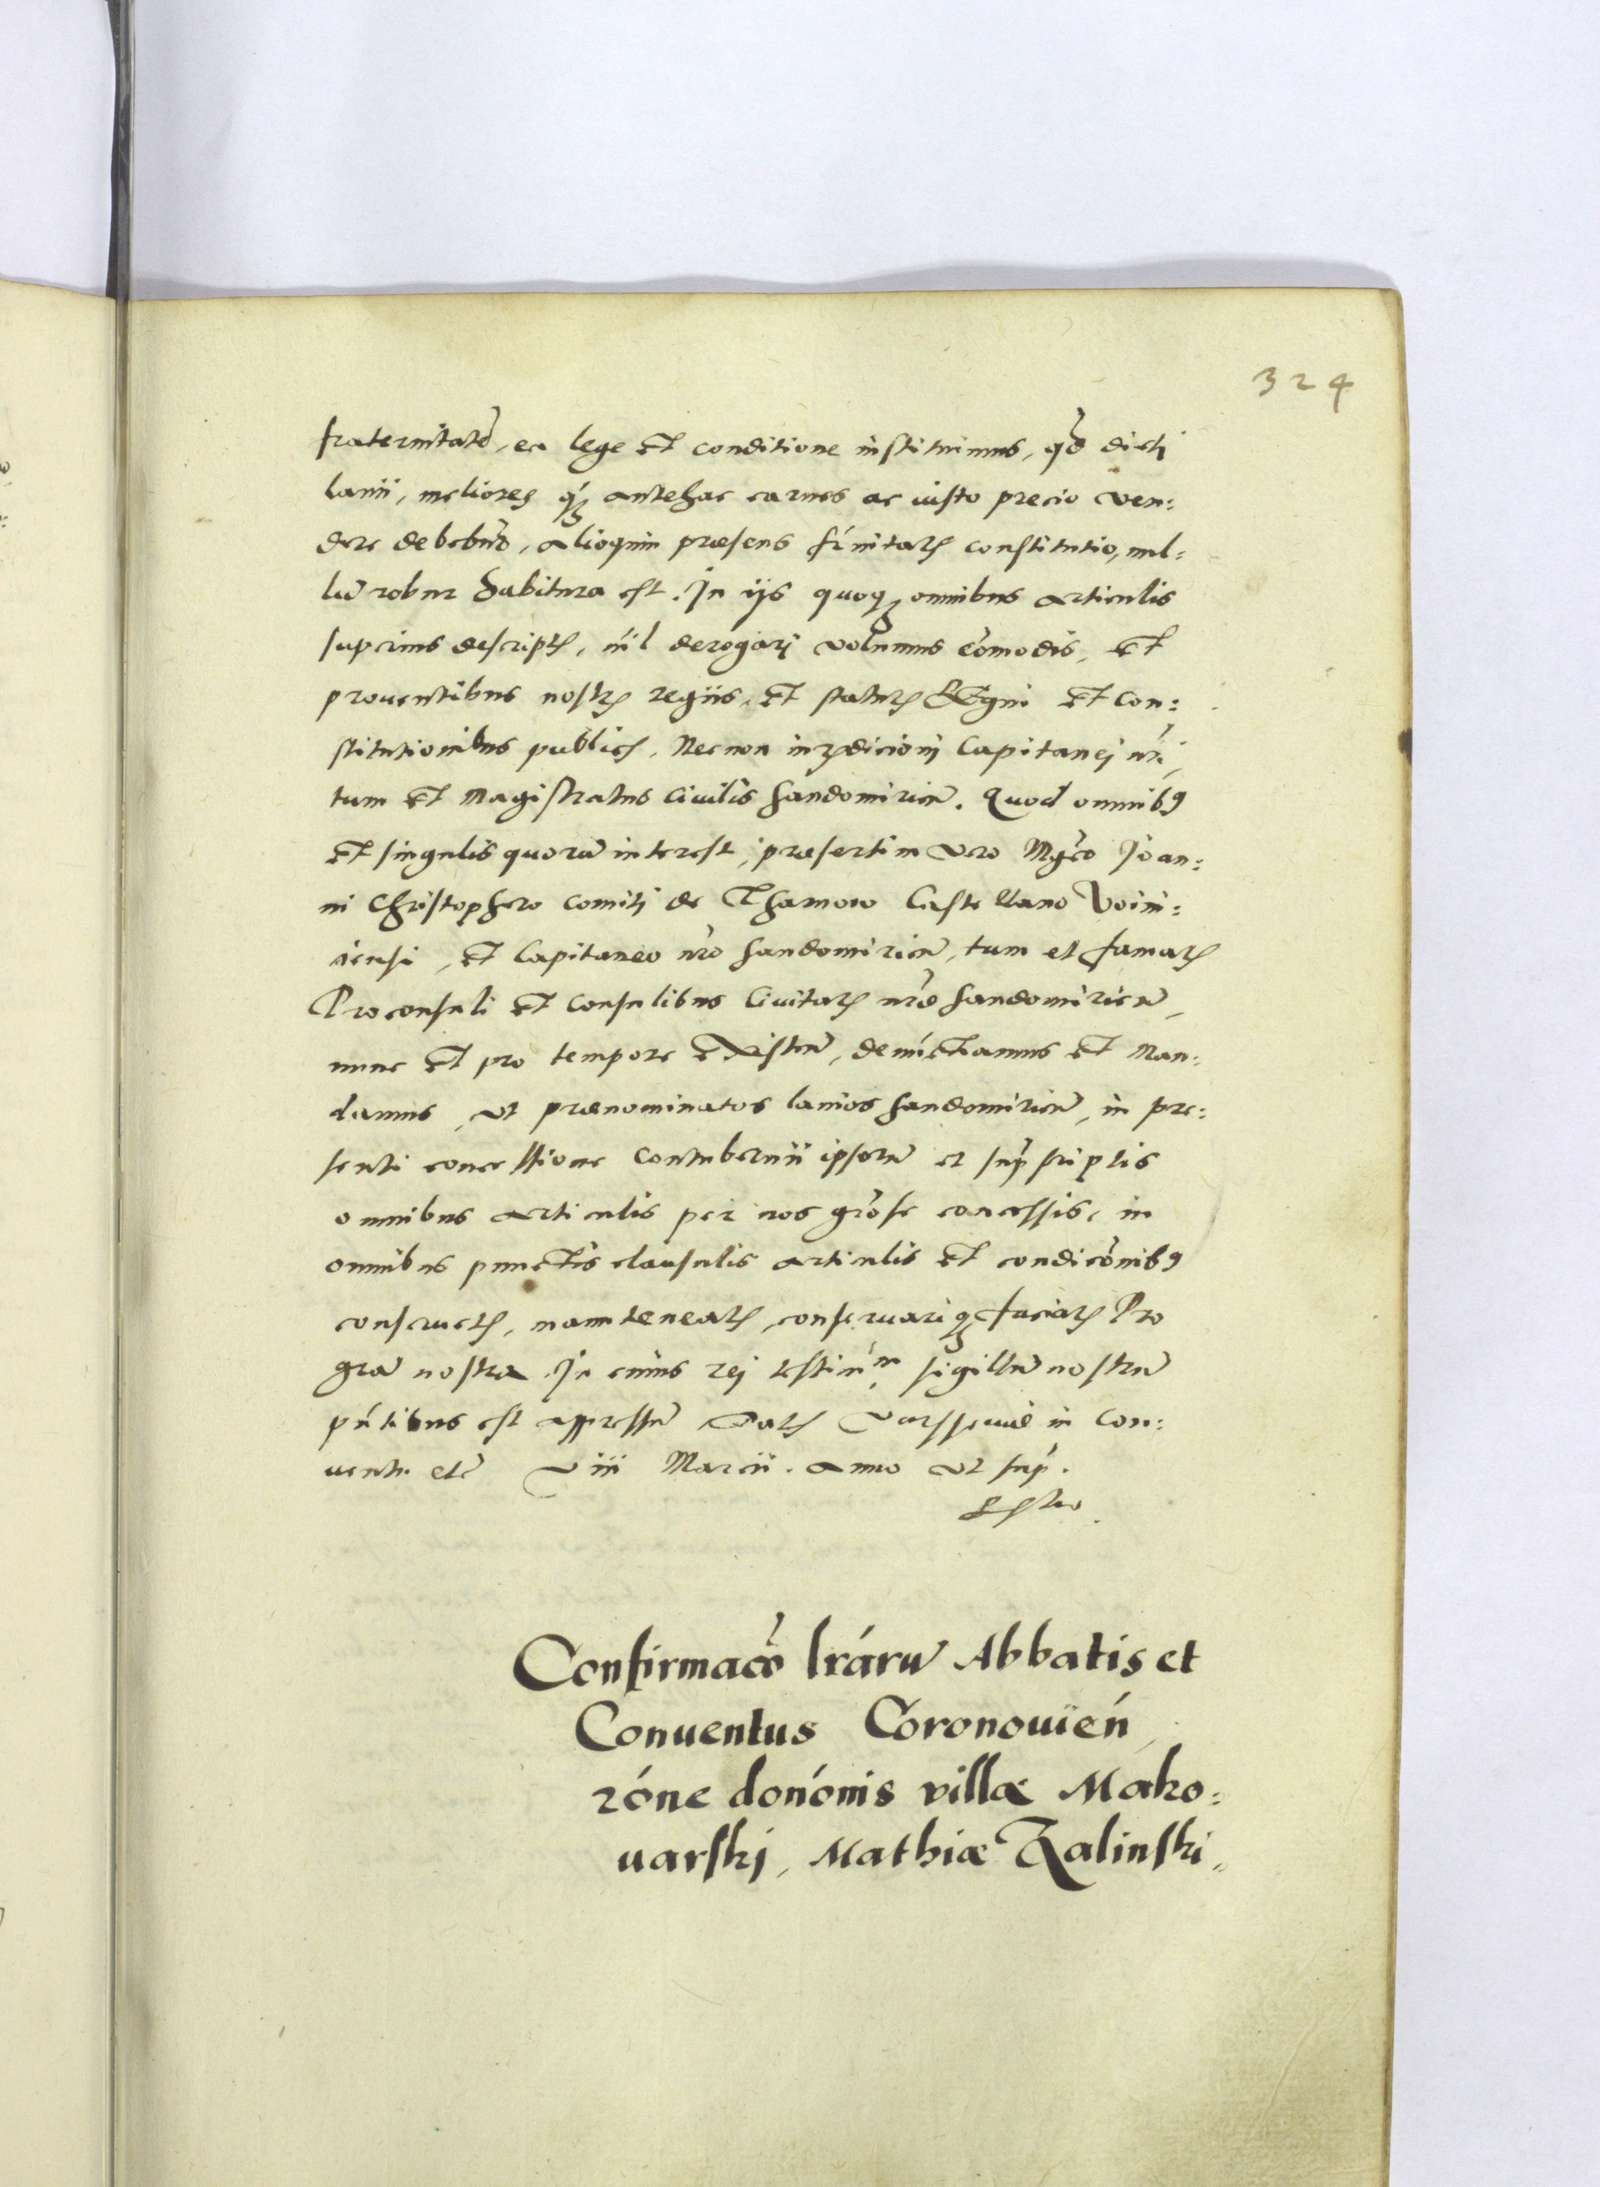 324
fraternitatē, ea lege et conditione instituimus, qđ dicti
lanii, meliores qꝫ antehac carnes ac iusto precio ven:
dere debebūt, alioquin præsens frńitatis constitutio, nul:
lū robur habitura est. In ijs quoqꝫ omnibus articulis
superius descriptis, nil derogari volumus cōmodis, et
prouentibus nostris regiis, et statutis Regni et con:
stitutionibus publicis. Necnon iurzdicioni Capitanej nr̃i,
tum et Magistratus Ciuilis Sandomirień. Quod omnibꝰ
et singulis quorū interest, præsertim vero Mgćo Joan:
ni Christophero comiti de Tharnow Castellano Voini:
ciensi, et Capitaneo nr̃o Sandomirień, tum et famatis
Proconsuli et Consulibus Ciuitatis nr̃æ Sandomirień,
nunc et pro tempore existeń, denúctiamus et Man:
damus, vt prænominatos lanios Sandomirień, in præ:
senti concessione Contubernii ipsorū et supࣷscriptis
omnibus articulis per nos gróse concessis, in
omnibus punctis clausulis articulis et condicōnibꝰ
conseruetis, manuteneatis, conseruariqꝫ faciatis Pro
grā nostra. In cuius rej testimm̄, sigillū nostrū
pńtibus est appressū Datis Varssouiæ in Con:
uentu etc̃ viii Marcii. Anno vt supࣷ.
Confirmacō lráru Abbatis et
Conuentus Coronouień,
róne donónis villæ Mako:
uarski, Mathiæ Zalinski,